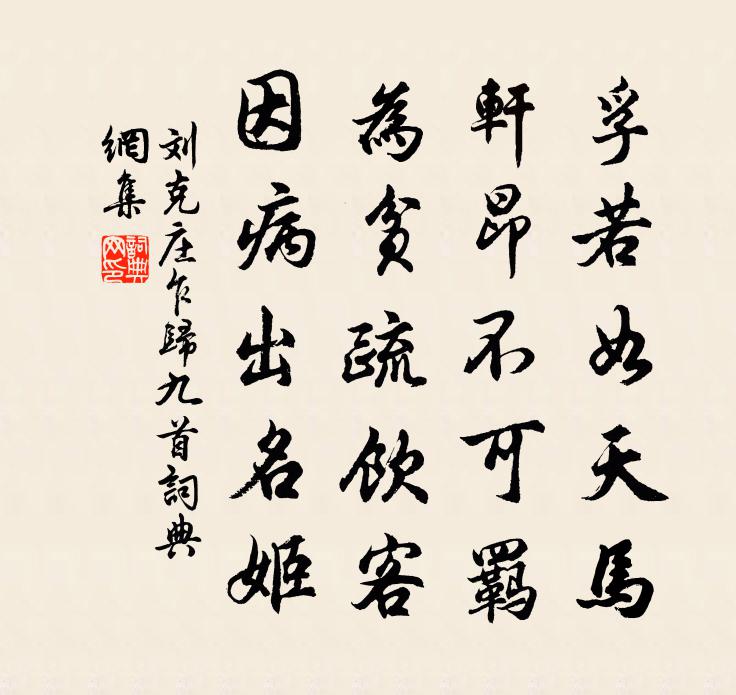 孚若如天馬
軒昂不可羈
為貧疏飲客
因病出名姬
刘克庄乍歸九首詞典
網集
詞典
网印